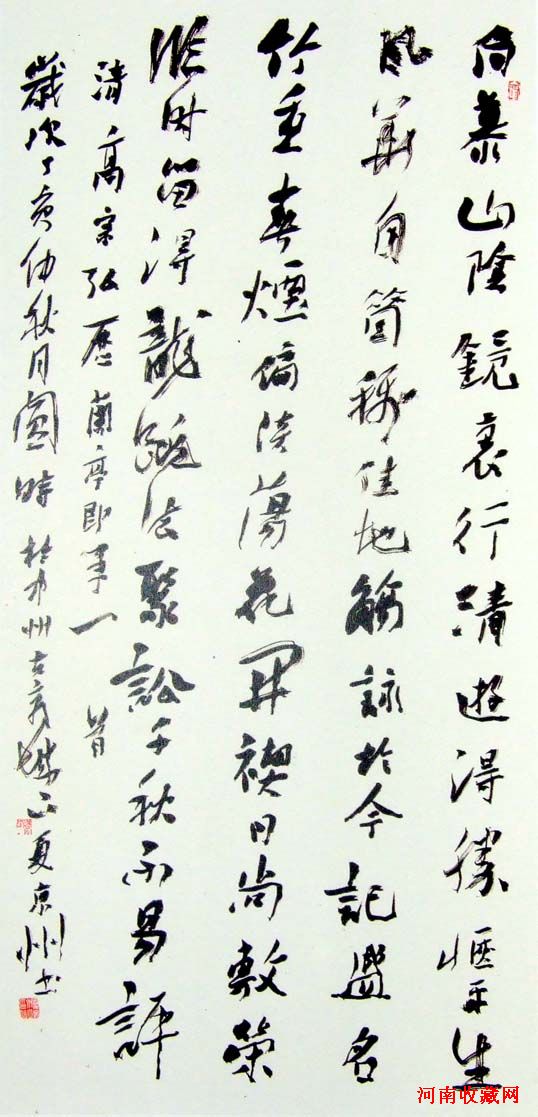 向慕山陰鏡裏行清遊得勝愜平生
風華自箇稱佳地觴詠於今記盛名
竹重春煙偏淡蕩花開禊日尚敷榮
臨留得龍跳法聚訟千秋不易評
清高宗弘歷蘭亭即事一首
歲次丁亥仲秋月圓時於中州古夏京州书
河南收藏网